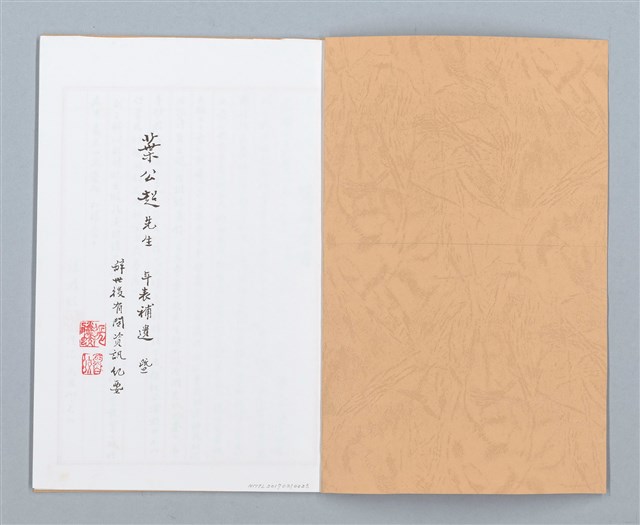 葉公超先生 年表補遺 暨
辭世後有關資訊紀要